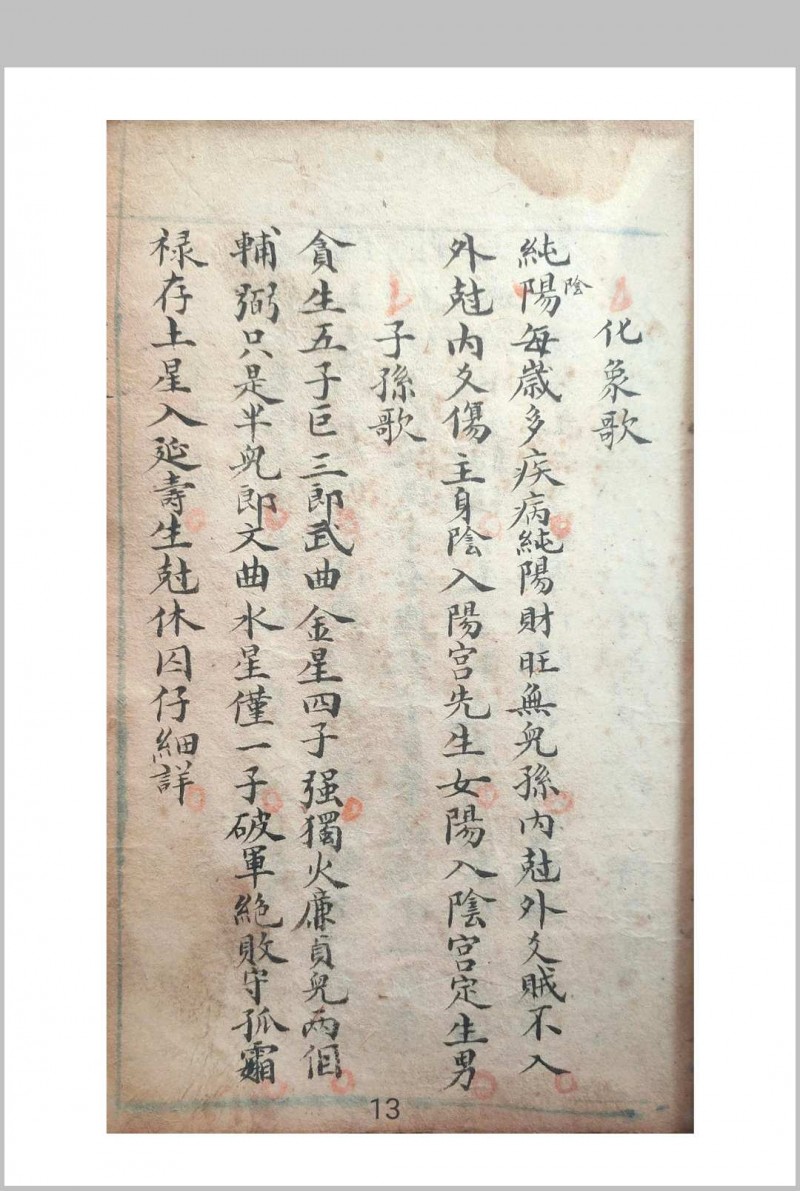 化象歌
純陽陰每歲多疾病純陽財旺無兒孫內尅外爻賊不入
外尅內爻傷主身陰入陽宮先生女陽入陰宮定生男
子孫歌
貪生五子巨三郎武曲金星四子强獨火廉貞兒两個
輔弼只是半兒郎文曲水星僅一子破軍絶敗守孤霜
禄存土星入延壽生尅休囚仔細詳
13